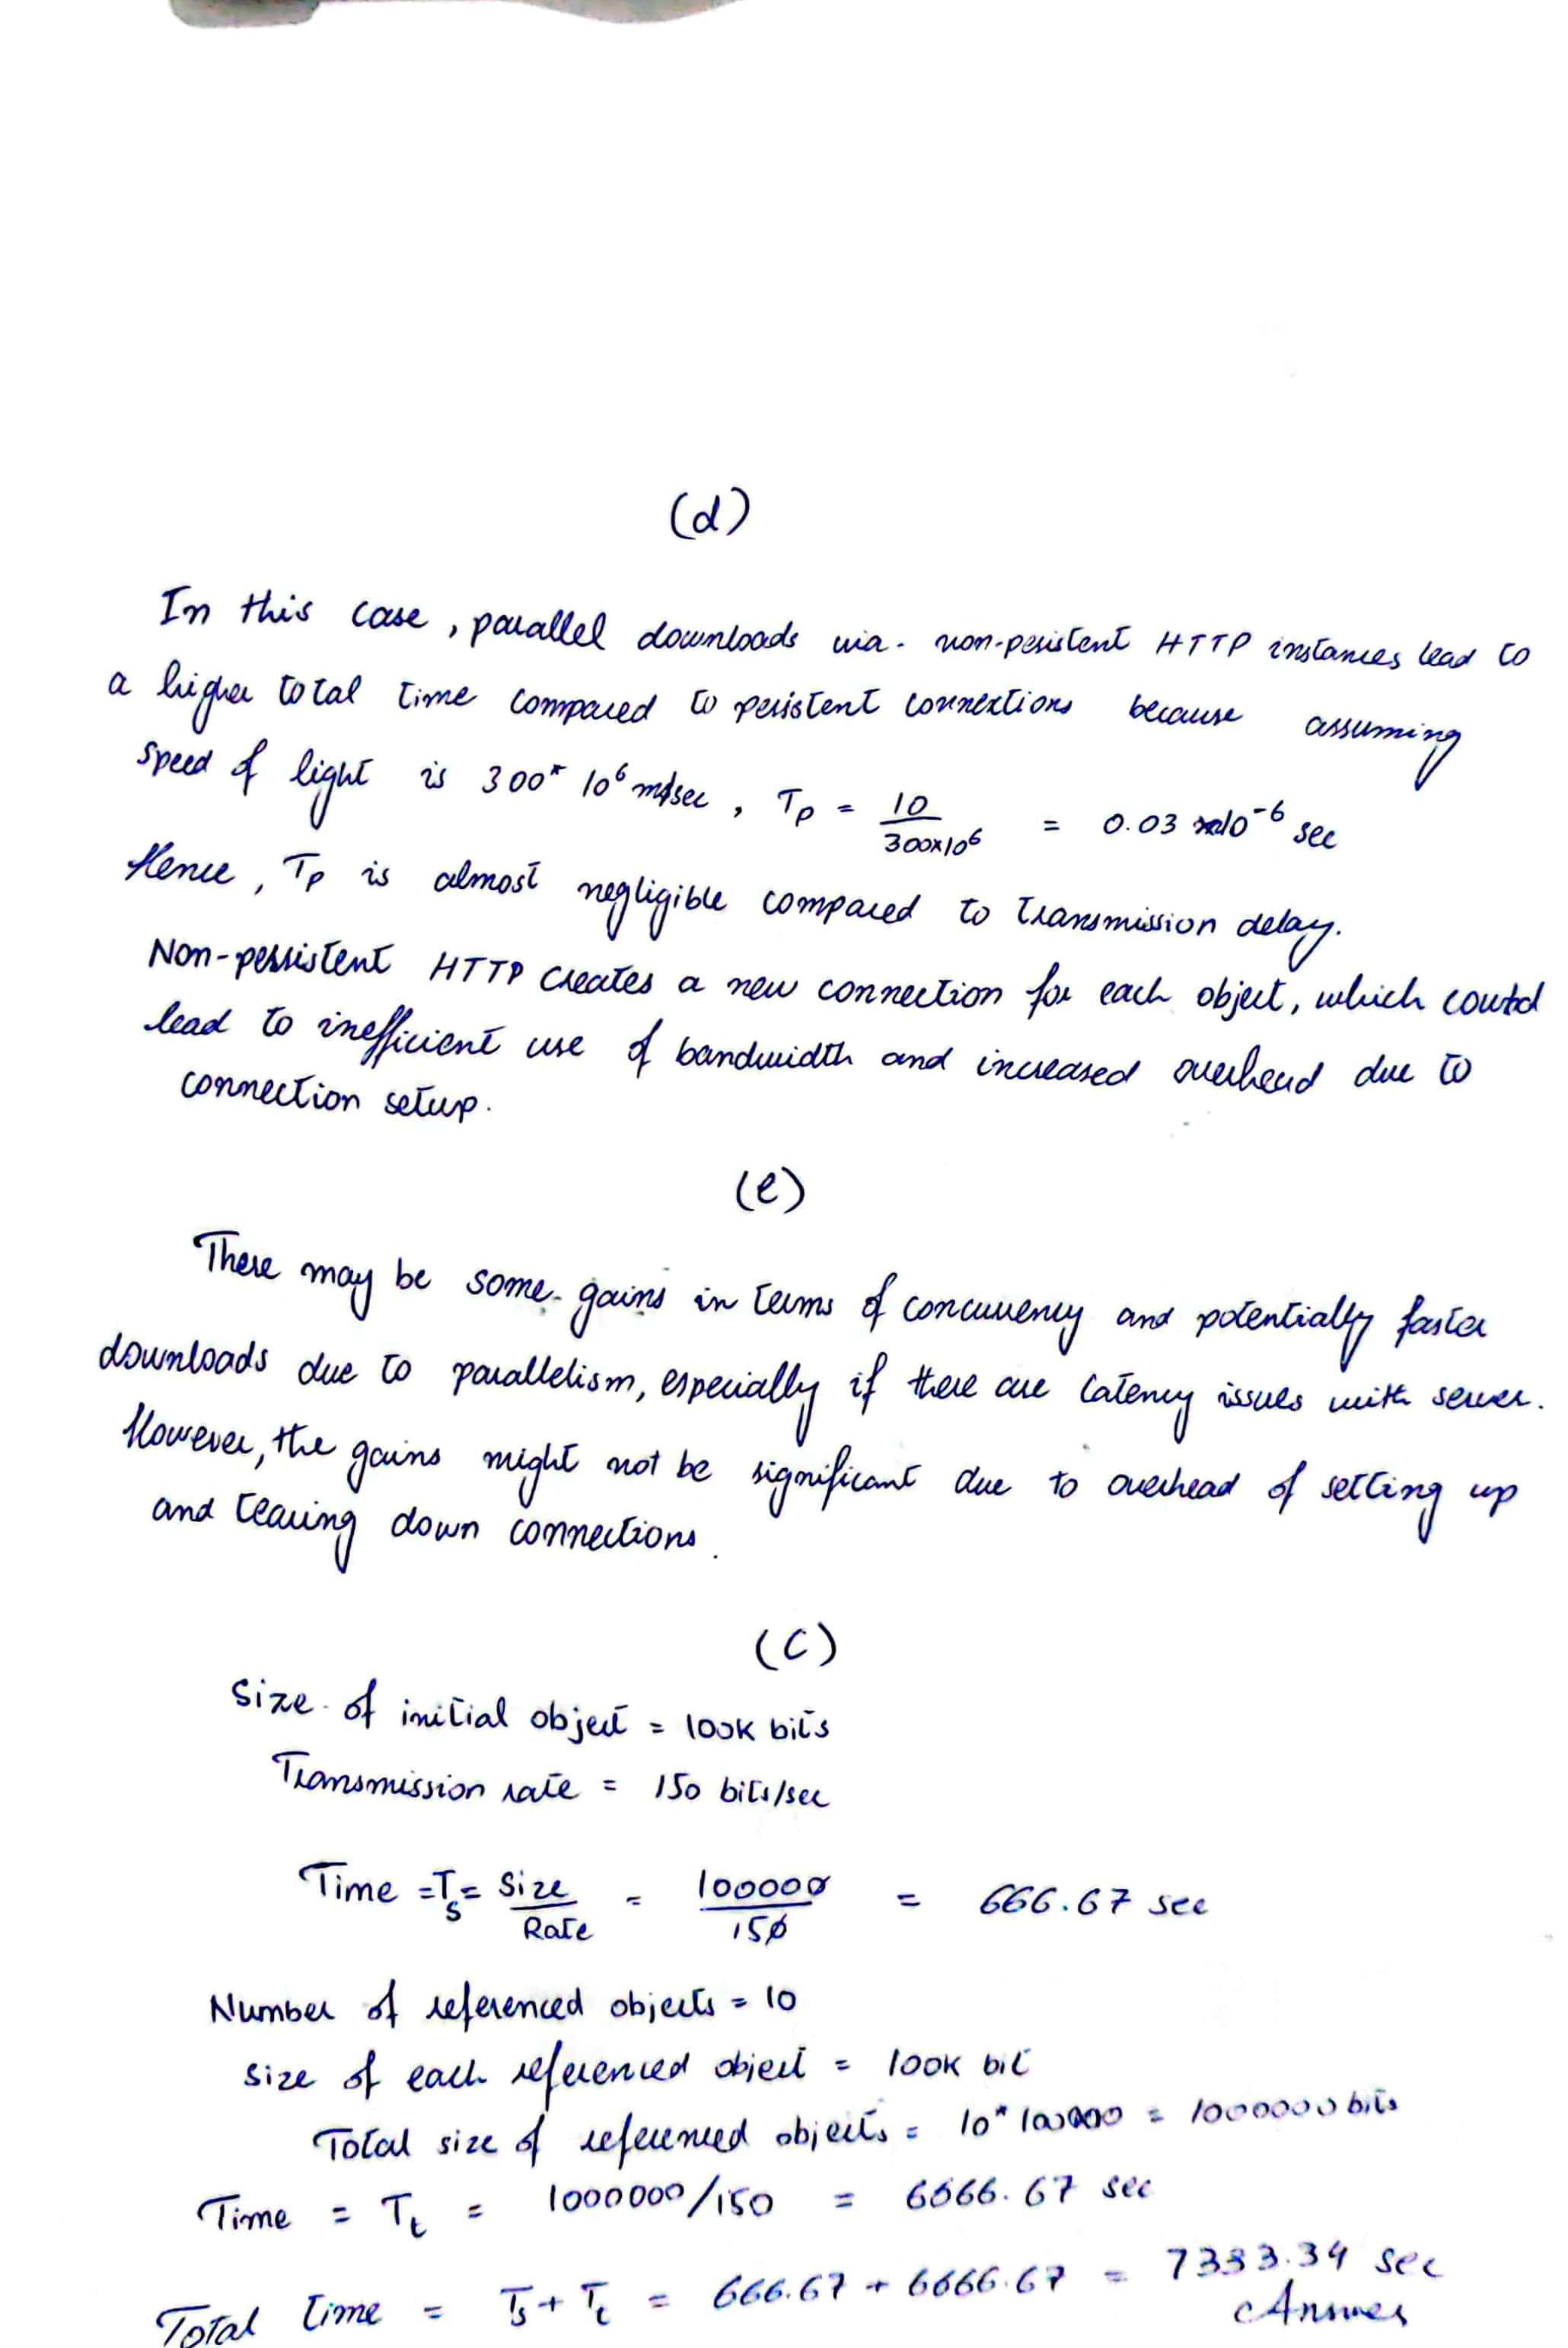 (d)
In this case, parallel downloads via. non-pesistent HTTP instances lead to
a higher total time compared to persistent connections because assuming
speed of light is 300* 10⁶ m/sec, Tp = 10/300x10⁶ = 0.03 x10⁻⁶ sec
Hence, Tp is almost negligible compared to transmission delay.
Non-persistent HTTP creates a new connection for each object, which could
lead to inefficient use of bandwidth and increased overhead due to
connection setup.
(e)
There may be some gains in terms of concurrency and potentially faster
downloads due to parallelism, especially if there are latency issues with server.
However, the gains might not be significant due to overhead of setting up
and tearing down connections.
(C)
Size of initial object = 100K bits
Transmission rate = 150 bits/sec
Time = Ts = Size/Rate = 100000/150 = 666.67 sec
Number of referenced objects = 10
size of each referenced object = 100K bit
Total size of referenced objects = 10* 100000 = 1000000 bits
Time = Tt = 1000000/150 = 6666.67 sec
Total time = Ts + Tt = 666.67 + 6666.67 = 7333.34 sec
Answer